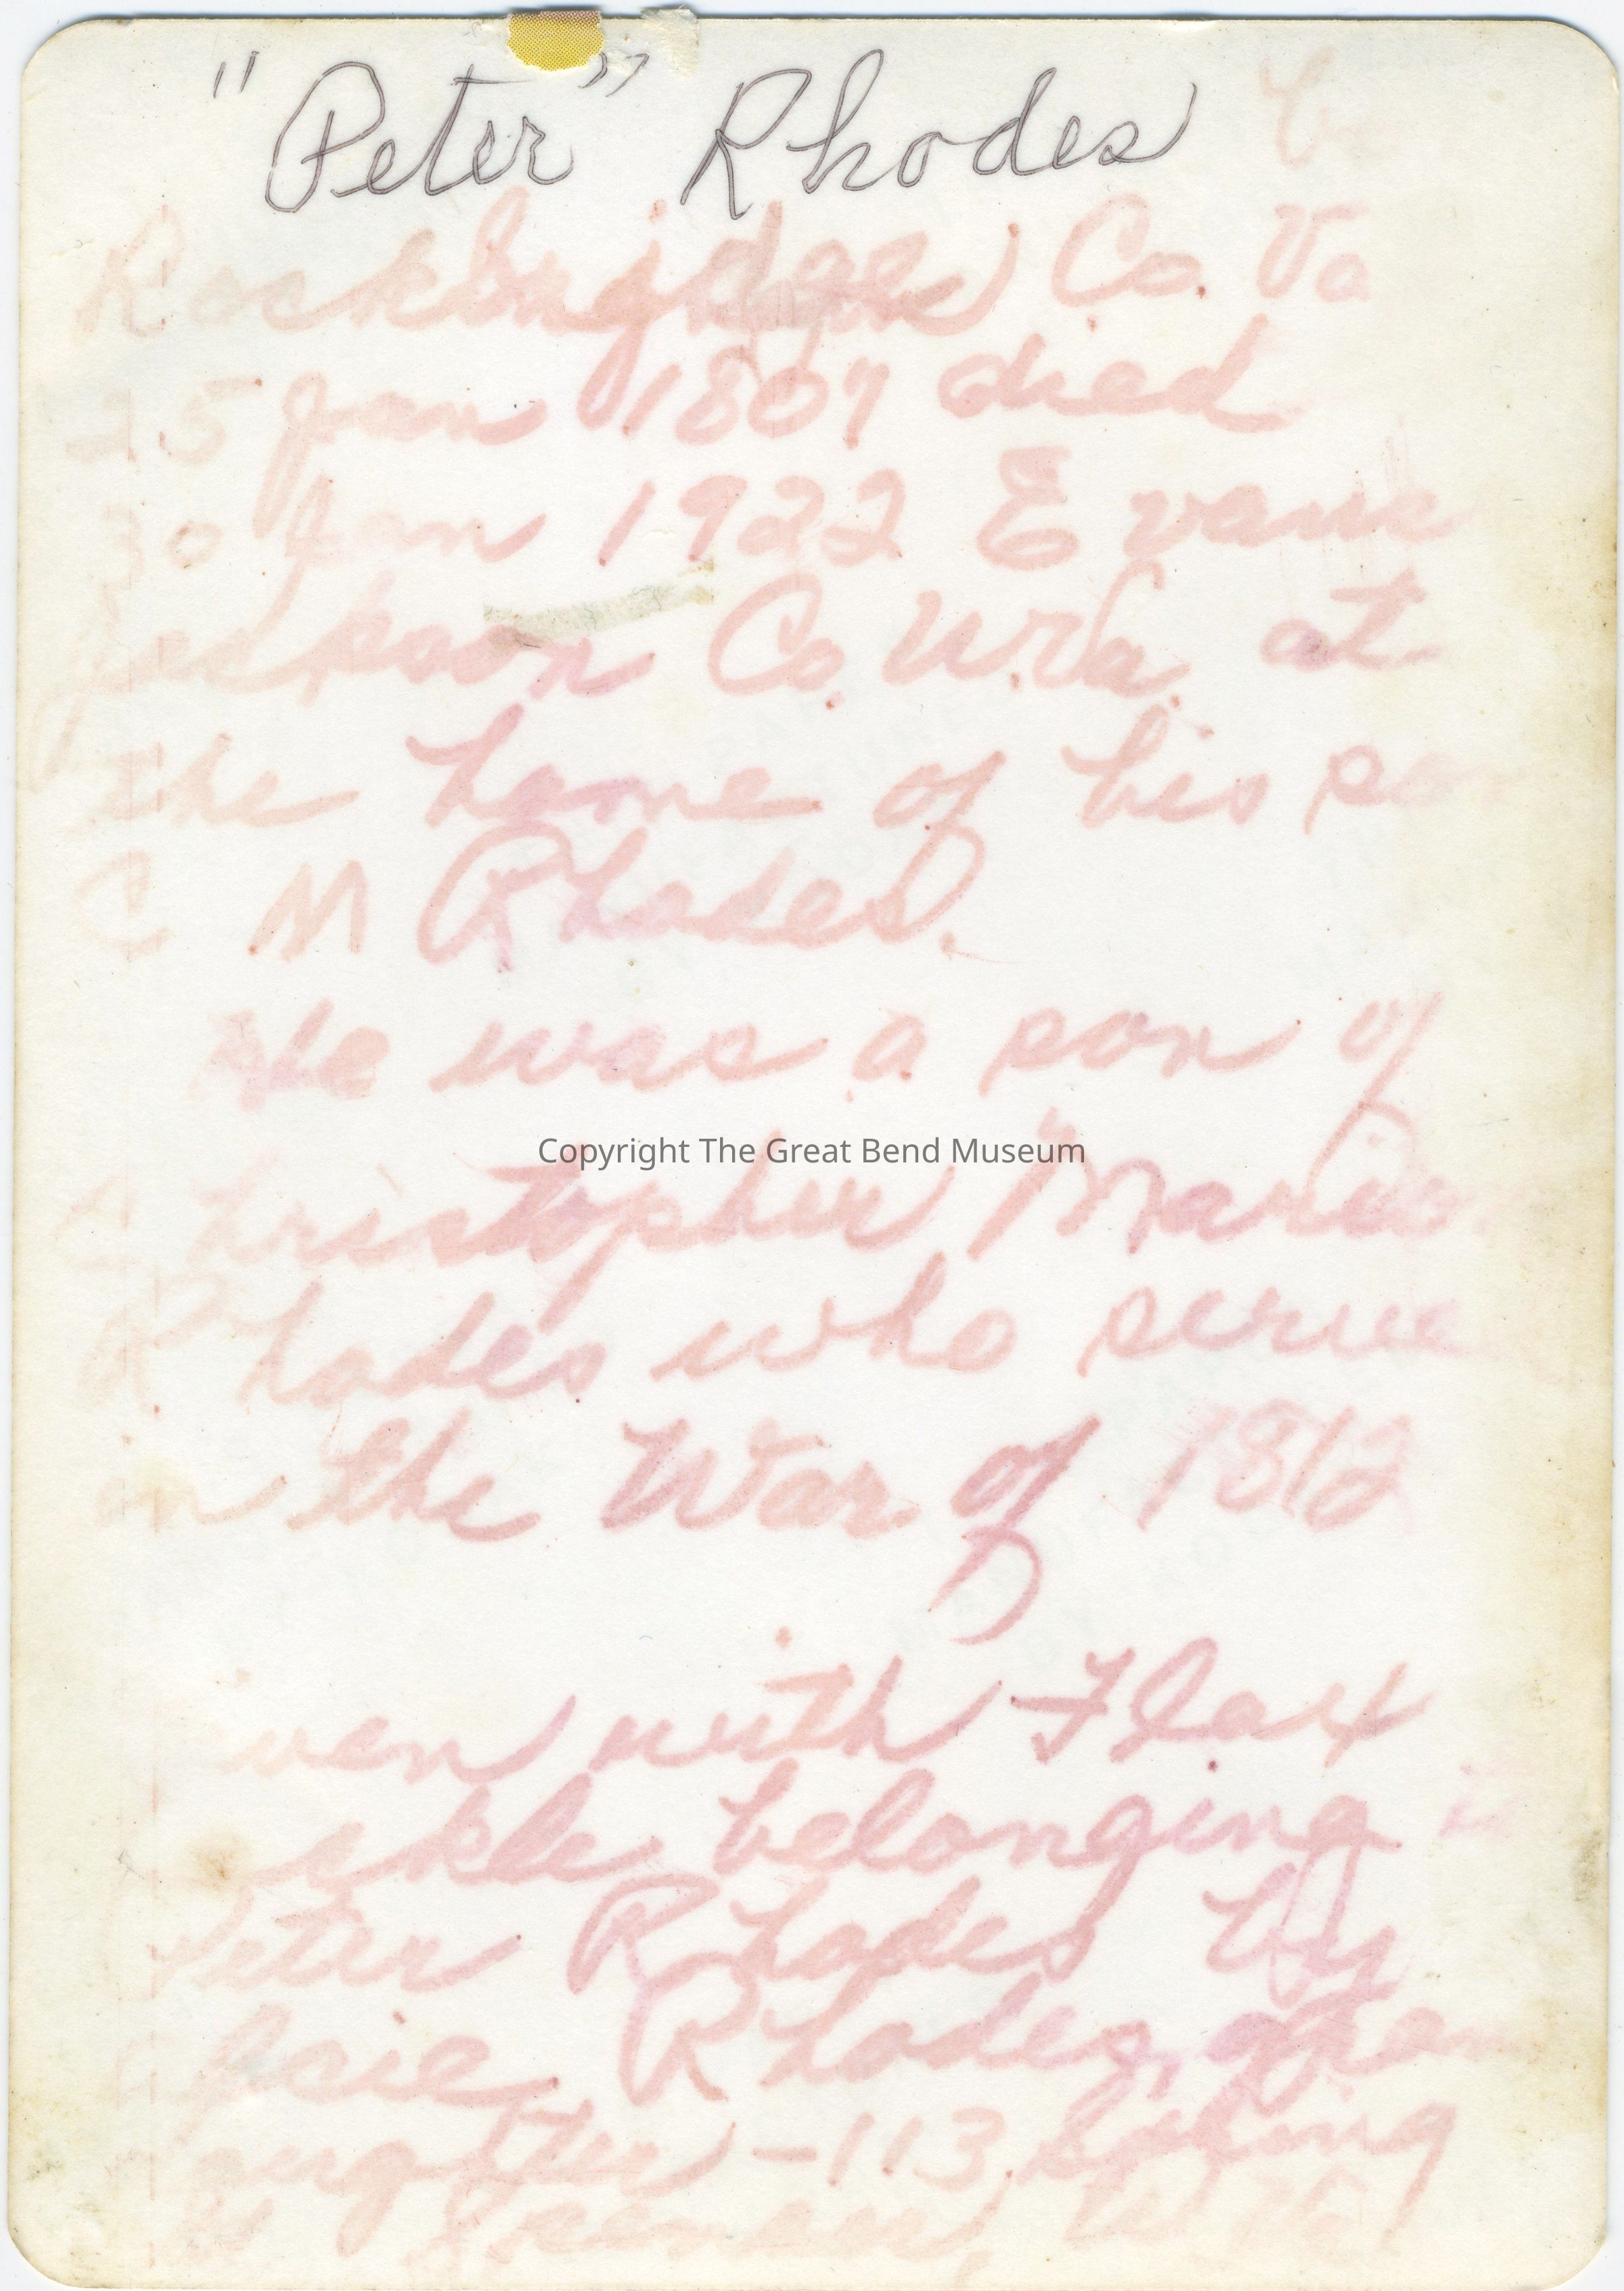 "Peter" Rhodes
Rockbridge Co. Va
25 Jan 1867 died
30 Jan 1922 Evans
Jackson Co. W.Va. at
the home of his son
C M Rhodes.
He was a son of
Copyright The Great Bend Museum
Christopher Marion
Rhodes who serve
in the War of 1812
iven with Flax
belonging to
Peter Rhodes by
Rhodes, gran
aughter - 113
W Va